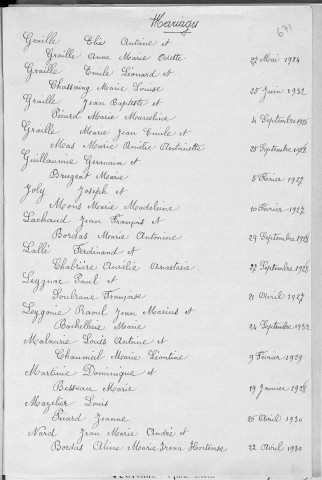 Mariages
671
Graille Elie Antoine et
Graille Anne Marie Odette 27 Mai 1924
Graille Emile Léonard et
Chassaing Marie Louise 25 Juin 1932
Graille Jean Baptiste et
Picard Marie Marceline 4 Septembre
Graille Marie Jean Emile et
Mas Marie Amélie Antoinette 25 Septembre
Guillaumie Germain et
Brugeat Marie 5 Février 1927
Joly Joseph et
Mons Marie Madeleine 10 Février 1927
Lachaud Jean François et
Bordas Marie Antonine 29 Septembre
Lallé Ferdinand et
Chabrière Aurélie Anastasie 22 Septembre
Leygnac Paul et
Soubrane Françoise 21 Avril 1927
Leygonie Raoul Jean Marius et
Bachellerie Marie 24 Septembre 1932
Malaurie Louis Antoine et
Chaumeil Marie Léontine 9 Février 1929
Martinie Dominique et
Besseau Marie 19 Janvier
Mazelier Louis
Picard Jeanne 26 Avril 1930
Nard Jean Marie André et
Bordas Aline Marie Irma Hortense 22 Avril 1930